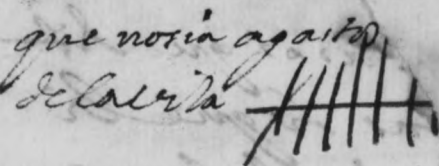 que nosia agasto
de la villa